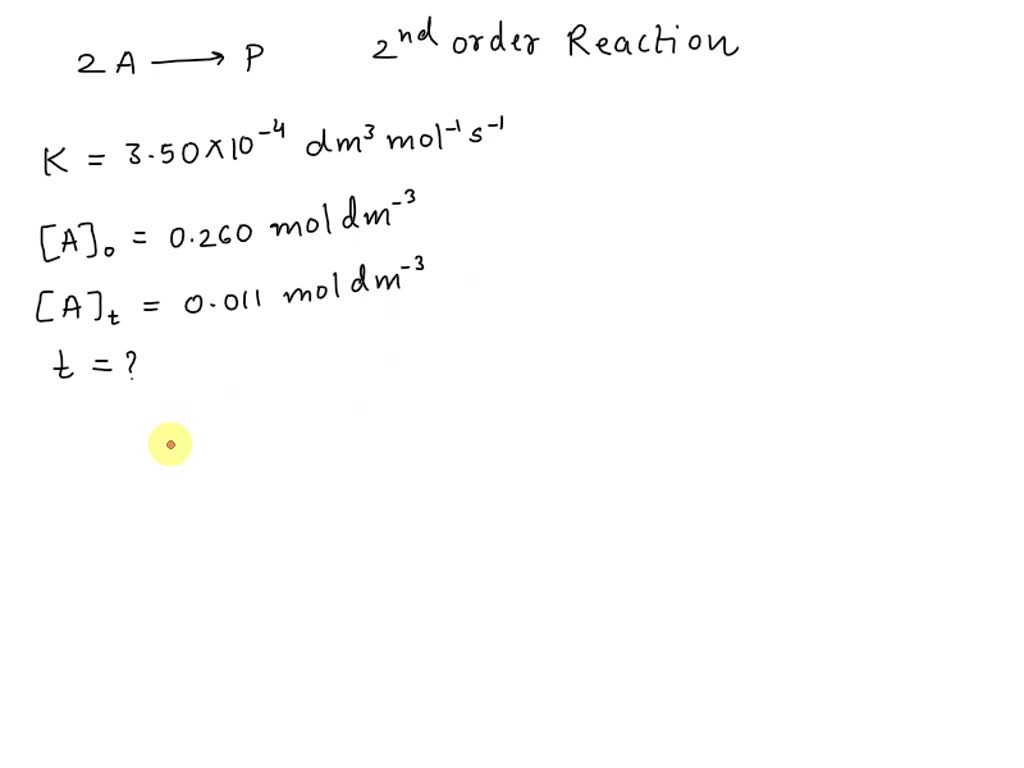 2A ⟶ P 2ⁿᵈ order Reaction
K = 3.50×10⁻⁴ dm³ mol⁻¹ s⁻¹
[A]₀ = 0.260 mol dm⁻³
[A]ₜ = 0.011 mol dm⁻³
t = ?